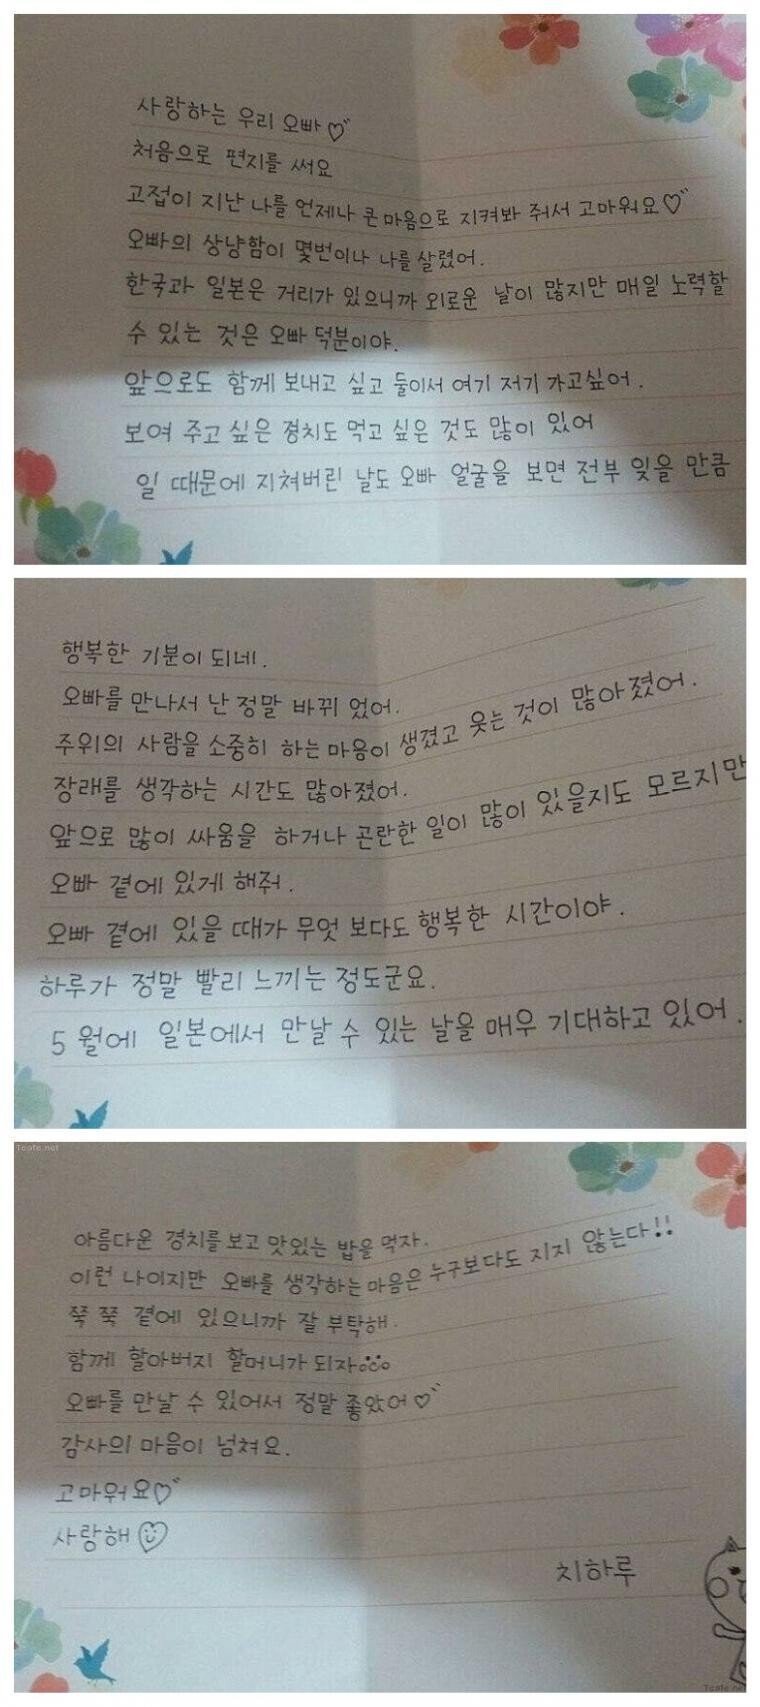 사랑하는 우리 오빠♡
처음으로 편지를 써요
고접이 지난 나를 언제나 큰 마음으로 지켜봐 줘서 고마워요♡
오빠의 상냥함이 몇번이나 나를 살렸어.
한국과 일본은 거리가 있으니까 외로운 날이 많지만 매일 노력할
수 있는 것은 오빠 덕분이야.
앞으로도 함께 보내고 싶고 둘이서 여기 저기 가고싶어.
보여 주고 싶은 경치도 먹고 싶은 것도 많이 있어
일 때문에 지쳐버린 날도 오빠 얼굴을 보면 전부 잊을 만큼
행복한 기분이 되네.
오빠를 만나서 난 정말 바뀌 었어.
주위의 사람을 소중히 하는 마음이 생겼고 웃는 것이 많아 졌어.
장래를 생각하는 시간도 많아졌어.
앞으로 많이 싸움을 하거나 곤란한 일이 많이 있을지도 모르지만
오빠 곁에 있게 해줘.
오빠 곁에 있을 때가 무엇 보다도 행복한 시간이야.
하루가 정말 빨리 느끼는 정도군요.
5월에 일본에서 만날 수 있는 날을 매우 기대하고 있어.
Tcafe.net
아름다운 경치를 보고 맛있는 밥을 먹자.
이런 나이지만 오빠를 생각하는 마음은 누구보다도 지지 않는다!!
쭉 쭉 곁에 있으니까 잘 부탁해.
함께 할아버지 할머니가 되자
오빠를 만날 수 있어서 정말 좋았어♡
감사의 마음이 넘쳐요.
고마워요♡
사랑해
치하루
Tcafe.net